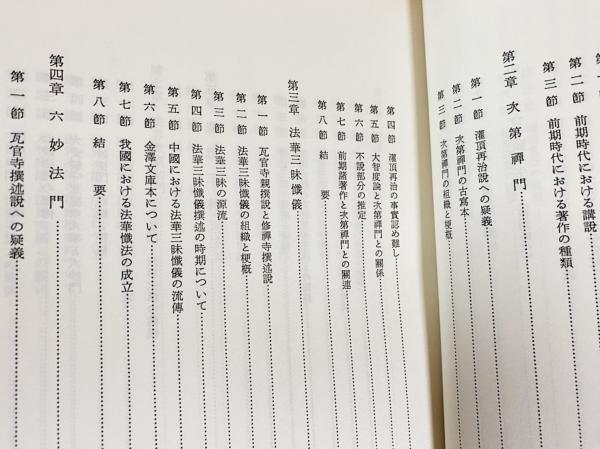 第二節 前期時代における講説
第三節 前期時代における著作の種類
第二章 次第禪門
第一節 灌頂再治說への疑義
第二節 次第禪門の古寫本
第三節 次第禪門の組織と梗概
第四節 灌頂再治の事實認め難し
第五節 大智度論と次第禪門との關係
第六節 不說部分の推定
第七節 前期諸著作と次第禪門との關連
第八節 結要
第三章 法華三昧懺儀
第一節 瓦官寺親撰說と修禪寺撰述說
第二節 法華三昧懺儀の組織と梗概
第三節 法華三昧の源流
第四節 法華三昧懺儀撰述の時期について
第五節 中國における法華三昧懺儀の流傳
第六節 金澤文庫本について
第七節 我國における法華懺法の成立
第八節 結要
第四章 六妙法門
第一節 瓦官寺撰述說への疑義